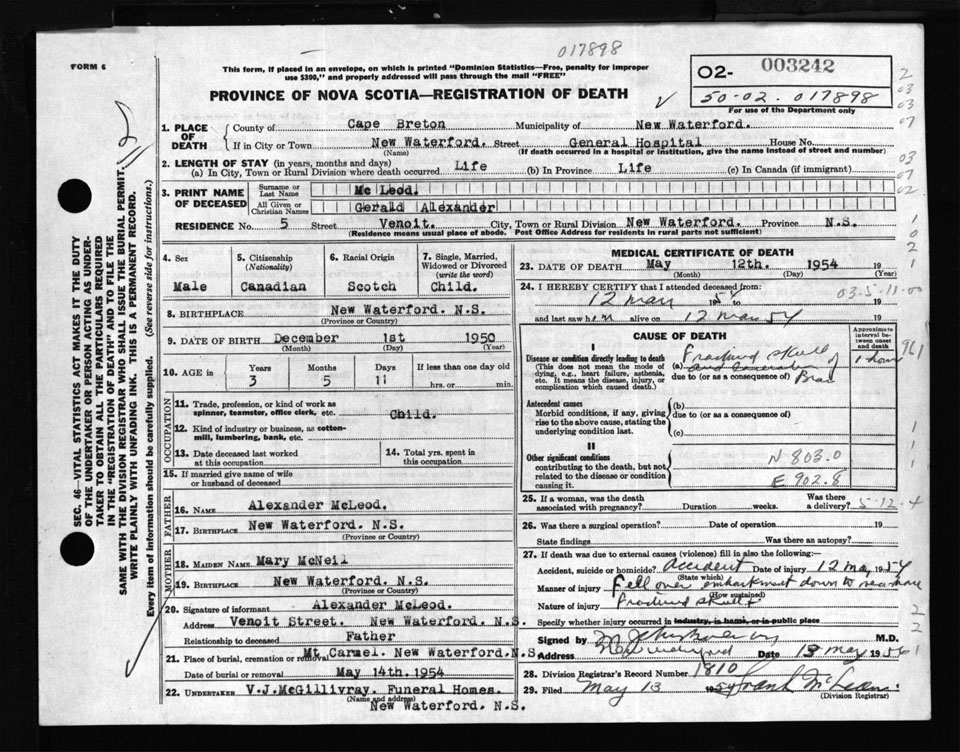 017898
FORM 6
This form, if placed in an envelope, on which is printed "Dominion Statistics—Free, penalty for improper
use $300," and properly addressed will pass through the mail "FREE"
02- 003242
50-02. 017898
For use of the Department only
PROVINCE OF NOVA SCOTIA—REGISTRATION OF DEATH
1. PLACE OF DEATH { County of Cape Breton Municipality of New Waterford.
If in City or Town New Waterford. Street General Hospital House No.
(Name) (If death occurred in a hospital or institution, give the name instead of street and number)
2. LENGTH OF STAY (in years, months and days)
(a) In City, Town or Rural Division where death occurred Life (b) In Province Life (c) In Canada (if immigrant)
3. PRINT NAME OF DECEASED { Surname or Last Name Mc Leod.
All Given or Christian Names Gerald Alexander
RESIDENCE No. 5 Street Venoit. City, Town or Rural Division New Waterford. Province N.S.
(Residence means usual place of abode. Post Office Address for residents in rural parts not sufficient)
4. Sex Male
5. Citizenship (Nationality) Canadian
6. Racial Origin Scotch
7. Single, Married, Widowed or Divorced (write the word) Child.
8. BIRTHPLACE New Waterford. N.S.
(Province or Country)
9. DATE OF BIRTH December 1st 1950
(Month) (Day) (Year)
10. AGE in Years Months Days If less than one day old
3 5 11 hrs. or min.
OCCUPATION
11. Trade, profession, or kind of work as
spinner, teamster, office clerk, etc. Child.
12. Kind of industry or business, as cotton-
mill, lumbering, bank, etc.
13. Date deceased last worked
at this occupation
14. Total yrs. spent in
this occupation
15. If married give name of wife
or husband of deceased
FATHER
16. NAME Alexander McLeod.
17. BIRTHPLACE New Waterford. N.S.
(Province or Country)
MOTHER
18. MAIDEN NAME Mary McNeil
19. BIRTHPLACE New Waterford. N.S.
(Province or Country)
20. Signature of informant Alexander McLeod.
Address Venoit Street. New Waterford. N.S.
Relationship to deceased Father
21. Place of burial, cremation or removal Mt Carmel. New Waterford.N.S.
Date of burial or removal May 14th. 1954
22. UNDERTAKER V.J.McGillivray. Funeral Homes.
(Name and address)
New Waterford. N.S.
MEDICAL CERTIFICATE OF DEATH
23. DATE OF DEATH May 12th. 1954 19
(Month) (Day) (Year)
24. I HEREBY CERTIFY that I attended deceased from:
12 May 1954 19
03-5-11-00
and last saw him alive on 12 May 54 19
CAUSE OF DEATH
Approximate interval between onset and death
I
Disease or condition directly leading to death
(This does not mean the mode of
dying, e.g., heart failure, asthenia,
etc. It means the disease, injury, or
complication which caused death.)
(a) Fractured skull
and laceration of
due to (or as a consequence of)
1 hour
961
Antecedent causes
Morbid conditions, if any, giving
rise to the above cause, stating the
underlying condition last.
(b)
due to (or as a consequence of)
(c)
II
Other significant conditions
contributing to the death, but not
related to the disease or condition
causing it.
N 803.0
E 902.8
25. If a woman, was the death
associated with pregnancy? Duration weeks. Was there
a delivery? 5-12-4
26. Was there a surgical operation? Date of operation 19
State findings Was there an autopsy?
27. If death was due to external causes (violence) fill in also the following:
Accident, suicide or homicide? Accident Date of injury 12 May 1954
(State which)
Manner of injury Fell over embankment down to sea shore
(How sustained)
Nature of injury Fractured skull
Specify whether injury occurred in industry, in home, or in public place
Signed by M.D.
Address New Waterford Date 13 May 1956
28. Division Registrar's Record Number 1810
29. Filed May 13 1954 Frank McLean
(Division Registrar)
SEC. 46—VITAL STATISTICS ACT MAKES IT THE DUTY
OF THE UNDERTAKER OR PERSON ACTING AS UNDER-
TAKER TO OBTAIN ALL THE PARTICULARS REQUIRED
IN THE "REGISTRATION OF DEATH" AND TO FILE THE
SAME WITH THE DIVISION REGISTRAR WHO SHALL ISSUE THE BURIAL PERMIT.
WRITE PLAINLY WITH UNFADING INK. THIS IS A PERMANENT RECORD.
Every item of information should be carefully supplied. (See reverse side for instructions.)